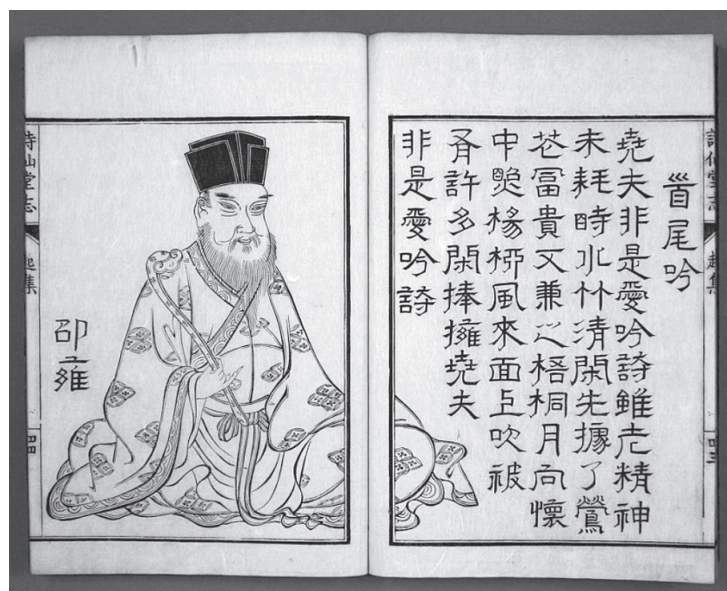 詩仙堂志
起集
四三
首尾吟
堯夫非是愛吟詩雖老精神
未耗時水竹清閑先據了鶯
花冨貴又兼之梧桐月向懷
中照楊柳風來面上吹被
有許多閑捧擁堯夫
非是愛吟詩
邵雍
詩仙堂志
起集
四四